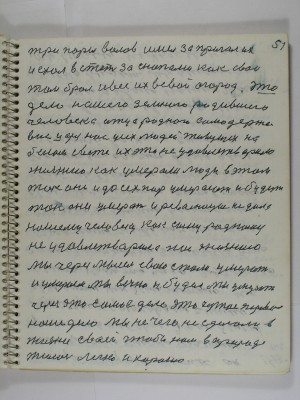 51
три пары волов имел запрягал их
и ехал в степь за снопами как свои
там брал и вез их в свой огород. Это
дело нашего земного родившего
человека
у нас всех людей живущих на
белом свете их это не удовлетворяло
жизнию как умерали люди в этом
так они и до сих пор умерают и будут
так они умерать и революция не дала
нашему человеку как сыну родному
не удовлетварила их жизнию
мы через мысли свои стали умерать
и умерали мы вечно и будем мы умерать
через это самое дело, это первое
наше дело мы ничего не сделали в
жизни своей чтобы нам в природе
жилось легко и хорошо